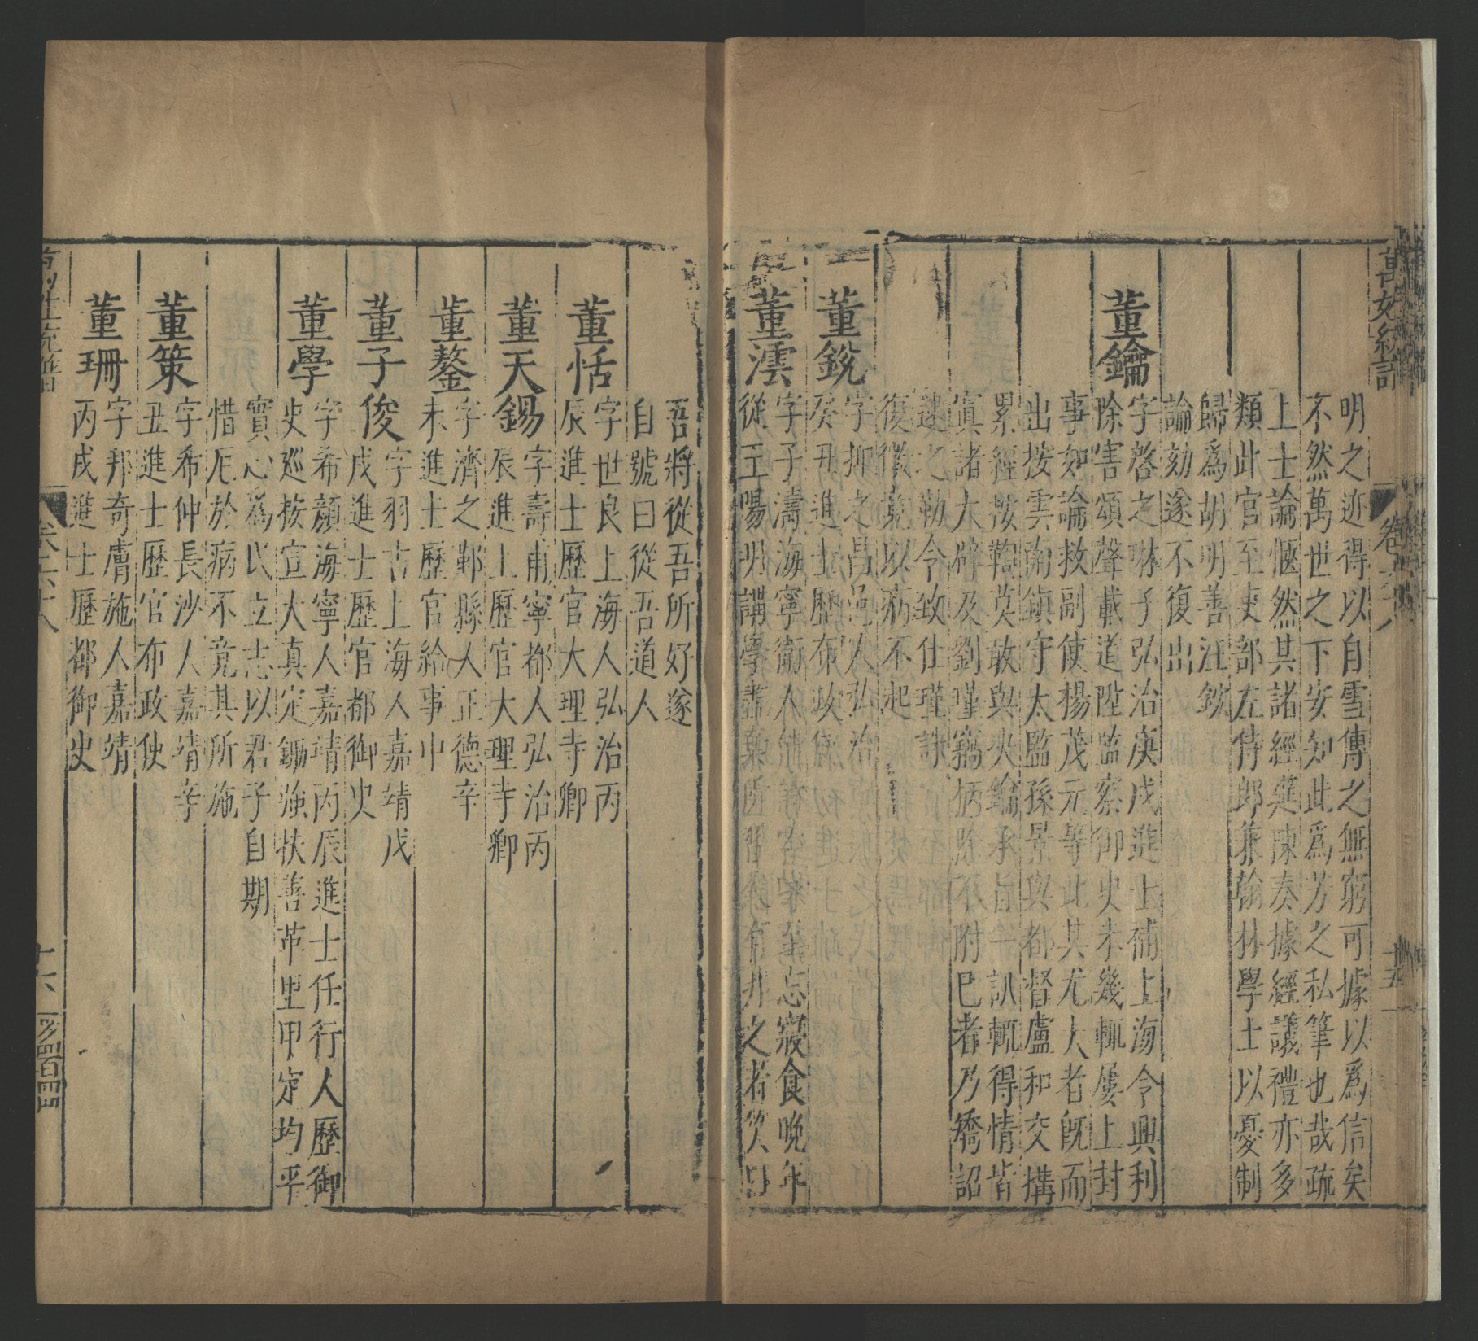 明之迹得以自雪傳之無窮可據以爲信矣
不然萬世之下安知此爲芳之私筆也哉疏
上士論愜然其諸經筵陳奏據經議禮亦多
類此官至吏部左侍郎兼翰林學士以憂制
歸爲胡明善汪鋐
論劾遂不復出
董鑰
字啓之琳子弘治庚戌進士補上海令興利
除害頌聲載道陞監察御史未幾輒屢上封
事如論救副使楊茂元等此其尤大者旣而
出按雲南鎮守太監孫景與都督盧和交搆
累經勘鞫莫敢與決鑰承旨訊輒得情皆
寘諸大辟及劉瑾竊柄除不附巳者乃矯詔
逮之勒令致仕瑾誅
復徵葉以病不起
董銳
字抑之昌邑人弘治
癸丑進士歷布政
董澐
字子濤海寧衛人忘寢食晚年
從王陽明講學
吾將從吾所好遂
自號曰從吾道人
董恬
字世良上海人弘治丙
辰進士歷官大理寺卿
董天錫
字壽甫寧都人弘治丙
辰進士歷官大理寺卿
董鏊
字濟之鄞縣人正德辛
未進士歷官給事中
董子俊
字羽吉上海人嘉靖戊
戌進士歷官都御史
董學
字希顏海寧人嘉靖丙辰進士任行人歷御
史巡按宣大真定鋤強扶善革里甲定均平
實心爲民立志以君子自期
惜厄於病不竟其所施
董策
字希仲長沙人嘉靖辛
丑進士歷官布政使
董珊
字邦奇膚施人嘉靖
丙戌進士歷都御史
十六